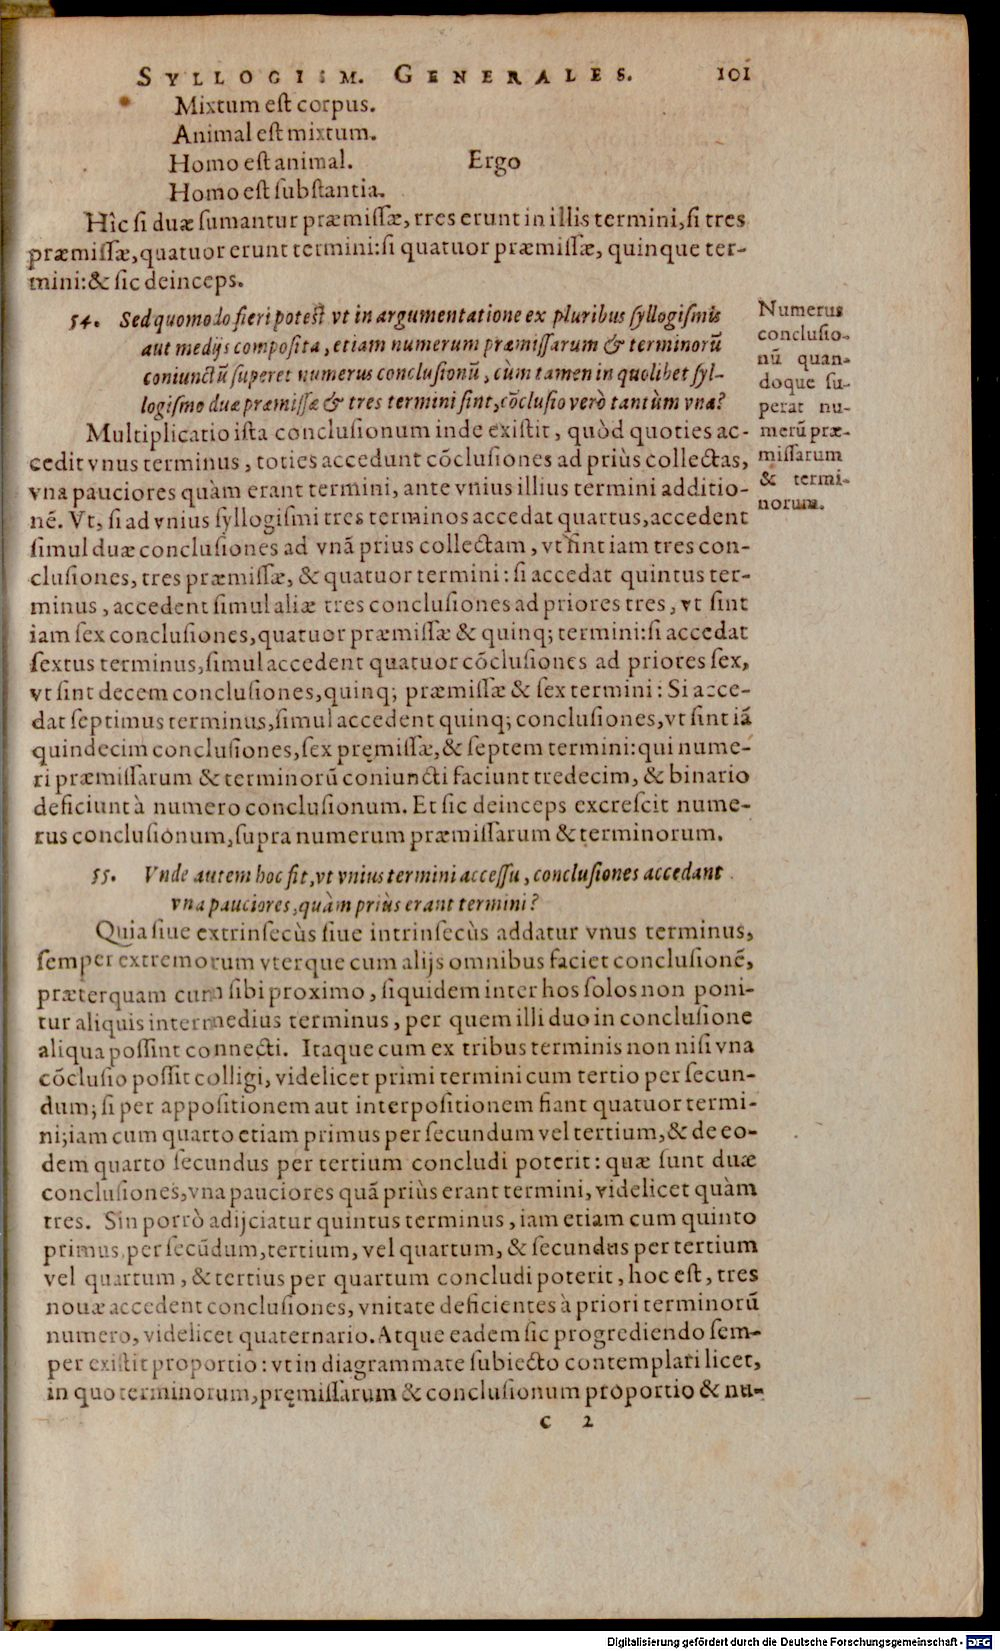 SYLLOGISM. GENERALES. 101
Mixtum est corpus.
Animal est mixtum.
Homo est animal. Ergo
Homo est substantia.
Hic si duæ sumantur præmissæ, rres erunt in illis termini, si tres
præmissæ, quatuor erunt termini: si quatuor præmissæ, quinque ter-
mini: & sic deinceps.
54. Sed quomodo fieri potest vt in argumentatione ex pluribus syllogismis
aut medijs composita, etiam numerum præmissarum & terminorũ
coniunctũ superet numerus conclusionũ, cùm tamen in quolibet syl-
logismo duæ præmissæ & tres termini sint, cõclusio verò tantùm vna?
Numerus
conclusio-
nũ quan-
doque su-
perat nu-
merũ præ-
missarum
& termi-
norum.
Multiplicatio ista conclusionum inde existit, quòd quoties ac-
cedit vnus terminus, toties accedunt cõclusiones ad priùs collectas,
vna pauciores quàm erant termini, ante vnius illius termini additio-
nẽ. Vt, si ad vnius syllogismi tres terminos accedat quartus, accedent
simul duæ conclusiones ad vnã prius collectam, vt sint iam tres con-
clusiones, tres præmissæ, & quatuor termini: si accedat quintus ter-
minus, accedent simul aliæ tres conclusiones ad priores tres, vt sint
iam sex conclusiones, quatuor præmissæ & quinq; termini: si accedat
sextus terminus, simul accedent quatuor cõclusiones ad priores sex,
vt sint decem conclusiones, quinq; præmissæ & sex termini: Si acce-
dat septimus terminus, simul accedent quinq; conclusiones, vt sint iã
quindecim conclusiones, sex pręmissæ, & septem termini: qui nume-
ri præmissarum & terminorũ coniuncti faciunt tredecim, & binario
deficiunt à numero conclusionum. Et sic deinceps excrescit nume-
rus conclusionum, supra numerum præmissarum & terminorum.
55. Vnde autem hoc fit, vt vnius termini accessu, conclusiones accedant
vna pauciores, quàm priùs erant termini?
Quia siue extrinsecùs siue intrinsecùs addatur vnus terminus,
semper extremorum vterque cum alijs omnibus faciet conclusionẽ,
præterquam cum sibi proximo, siquidem inter hos solos non poni-
tur aliquis intermedius terminus, per quem illi duo in conclusione
aliqua possint connecti. Itaque cum ex tribus terminis non nisi vna
cõclusio possit colligi, videlicet primi termini cum tertio per secun-
dum; si per appositionem aut interpositionem fiant quatuor termi-
ni; iam cum quarto etiam primus per secundum vel tertium, & de eo-
dem quarto secundus per tertium concludi poterit: quæ sunt duæ
conclusiones, vna pauciores quã priùs erant termini, videlicet quàm
tres. Sin porrò adijciatur quintus terminus, iam etiam cum quinto
primus per secũdum, tertium, vel quartum, & secundus per tertium
vel quartum, & tertius per quartum concludi poterit, hoc est, tres
nouæ accedent conclusiones, vnitate deficientes à priori terminorũ
numero, videlicet quaternario. Atque eadem sic progrediendo sem-
per existit proportio: vt in diagrammate subiecto contemplari licet,
in quo terminorum, pręmissarum & conclusionum proportio & nu-
c 2
Digitalisierung gefördert durch die Deutsche Forschungsgemeinschaft - DFG